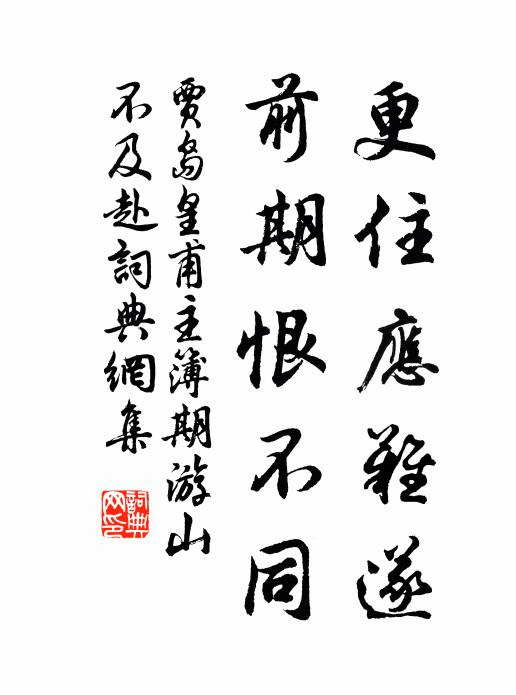 更住應難遂
前期恨不同
賈島皇甫主簿期游山
不及赴詞典網集
詞典
网印